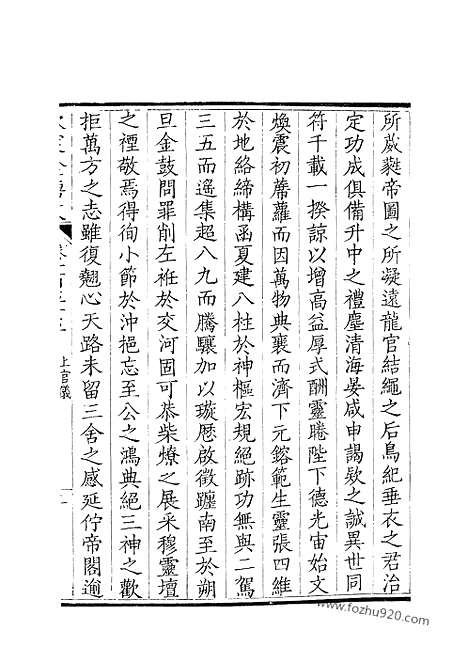 所葳蕤帝圖之所凝遠龍官結繩之后鳥紀垂衣之君治
定功成俱備升中之禮塵清海晏咸申謁欵之誠異世同
符千載一揆諒以增高益厚式酬靈睠陛下德光宙始文
煥震初蔕蘿而因萬物典襄而濟下元鎔範生靈張四維
於地絡締構函夏建八柱於神樞宏規絕跡功無與二駕
三五而遥集超八九而騰驤加以璇歷啟徵躔南至於朔
旦金鼓問罪削左袵於交河固可恭柴燎之展采穆靈壇
之禋敬焉得徇小節於沖挹忘至公之鴻典絕三神之歡
拒萬方之志雖復翹心天路未留三舍之感延佇帝閣逾
欽定全唐文
上官儀
www.fozhu920.com